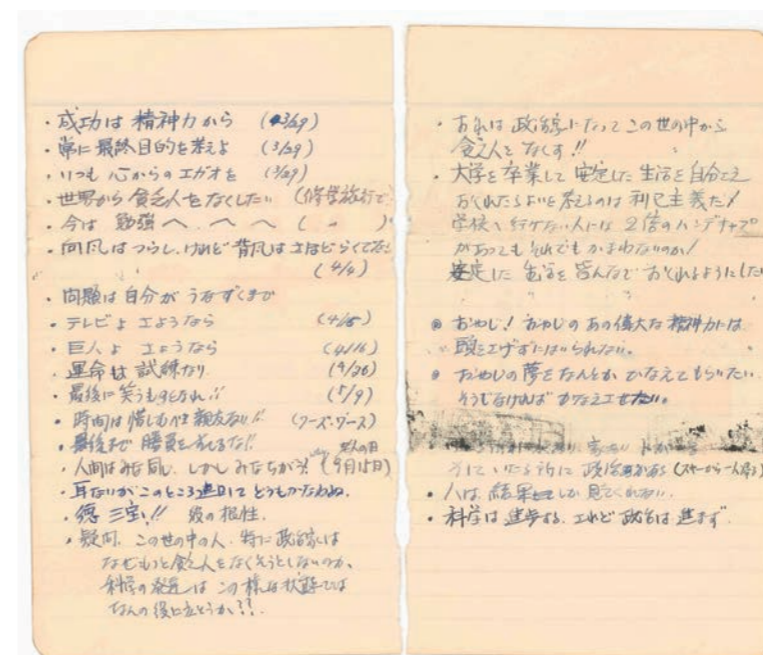 ・成功は 精神力から (3/29)
・常に最終目的を考えよ (3/29)
・いつも 心からのエガオを (3/29)
・世界から 貧乏人をなくしたい (修学旅行で
・今は 勉強へ へ へ ( 〃 )
・向風はつらし、けれど 背風はさほどらくでない
(4/4)
・問題は自分が うなずくまで
・テレビよ さようなら (4/15)
・巨人よ さようなら (4/16)
・運命は 試練なり (4/26)
・最後に笑うものたれ!! (5/9)
・時間は惜しむべき親友なり!!
・最後まで 勝負を すてるな!!
・人間はみな同じ、しかし みなちがう! (9月15日)
老人の日
・耳なりがこのところ
・徳三宝!! 彼の根性.
・疑問、この世の中の人、特に政治家は
なぜもっと貧乏人をなくそうとしないのか、
科学の発見は この様な状態では
なんの役に立とうか??.
・おれは 政治家になって この世の中から
貧乏人を なくす!!
・大学を卒業して 安定した 生活を自分さえ
おくれたらよいと考えるのは 利己主義だ!
学校へ行けない人には 2倍のハンデキャップ
があっても それでも かまわないのか!
安定した 生活を 皆んなで おくれるようにしたい
◎ おやじ! おやじの あの偉大な精神力には
頭をさげずにはいられない。
◎ おやじの夢をなんとか かなえてもらいたい.
そうでなければ かなえさせたい.
(スキーから一人帰る)
・人は、結果しか 見てくれない.
・科学は 進歩する、されど 政治は 進まず.